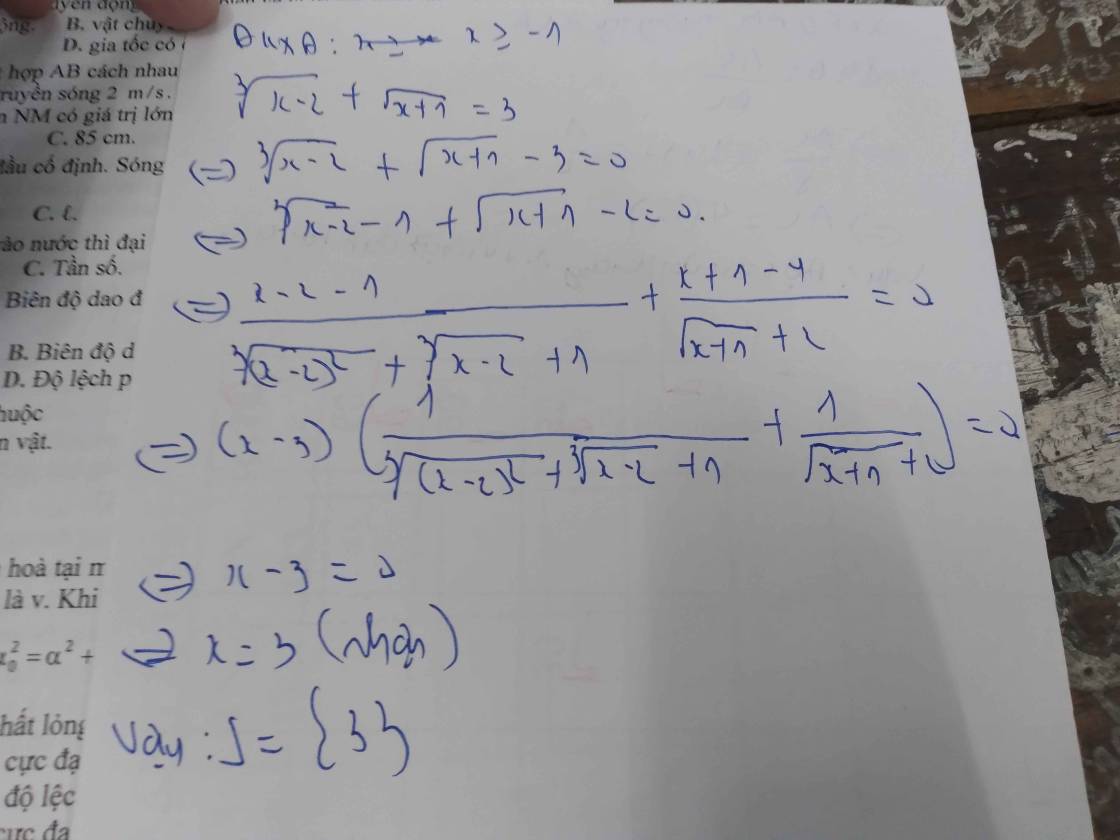 uyển động
ộng. B. vật chuy
D. gia tốc có
t hợp AB cách nhau
ruyền sóng 2 m/s.
n NM có giá trị lớn
C. 85 cm.
đầu cố định. Sóng
C. ℓ.
ào nước thì đại
C. Tần số.
Biên độ dao đ
B. Biên độ d
D. Độ lệch p
huộc
n vật.
hoà tại m
là v. Khi
α₀² = α² +
hất lỏng
cực đạ
độ lệc
cực đa
ĐKXĐ: x ≥ -1
∛(x-2) + √(x+1) = 3
⇔ ∛(x-2) + √(x+1) - 3 = 0
⇔ ∛(x-2) - 1 + √(x+1) - 2 = 0.
⇔ (x-2-1)/(∛(x-2)² + ∛(x-2) + 1) + (x+1-4)/(√(x+1) + 2) = 0
⇔ (x-3) (1/(∛(x-2)² + ∛(x-2) + 1) + 1/(√(x+1) + 2)) = 0
⇔ x - 3 = 0
⇔ x = 3 (nhận)
Vậy : S = {3}